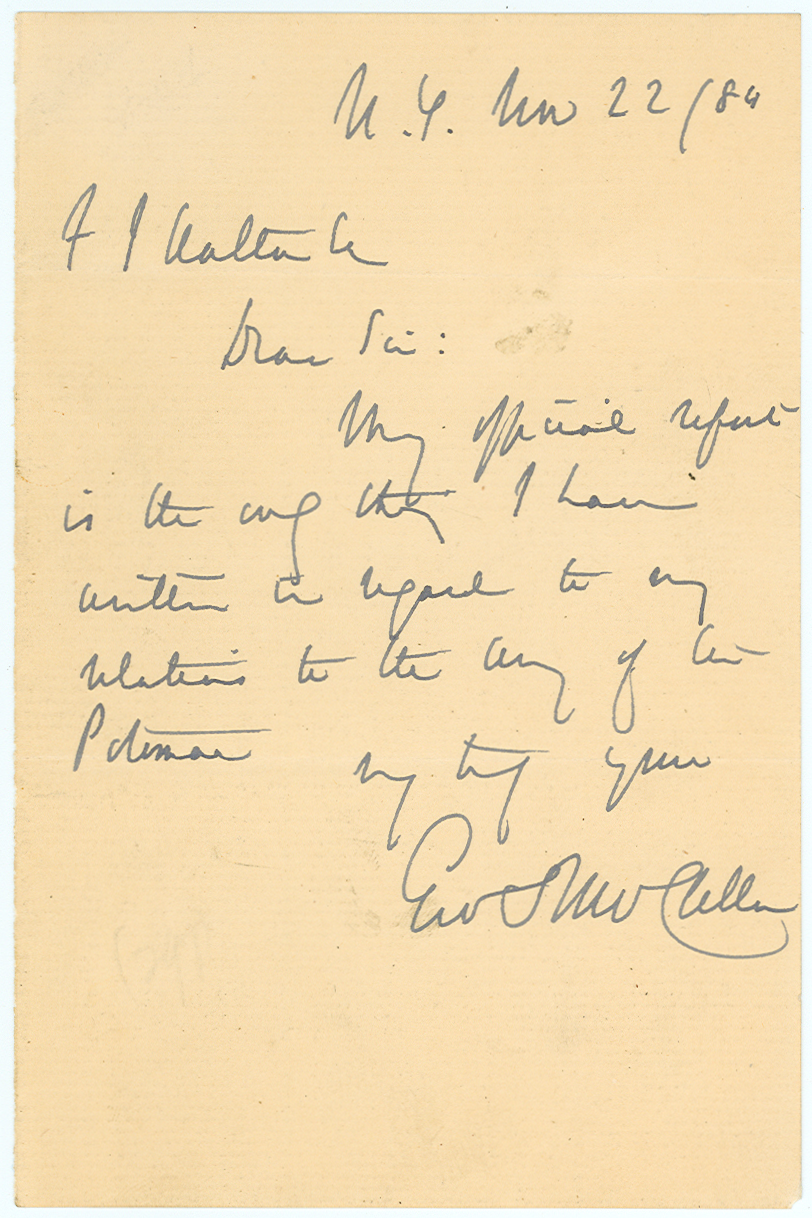 N.Y. Nov 22/84
F J
Dear Sir:
My official report
is the only thing I have
written in regard to my
relations to the Army of the
Potomac
Very truly yours
Geo B McClellan